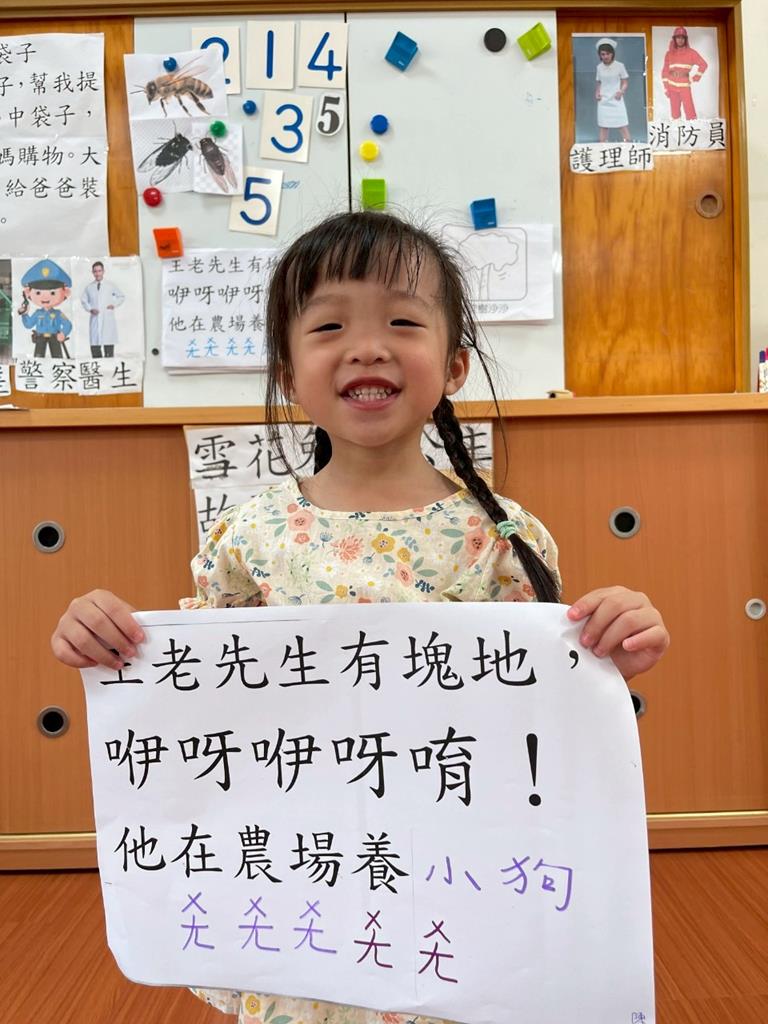 袋子
子,幫我提
中袋子,
媽購物。大
給爸爸裝
。
214
3 5
5
護理師
消防員
警察
醫生
王老先生有塊
咿呀咿呀
他在農場養
ㄨㄤ ㄨㄤ ㄨㄤ ㄨㄤ
樹沙沙
雪花
故
王老先生有塊地,
咿呀咿呀唷!
他在農場養小狗
ㄨㄤ ㄨㄤ ㄨㄤ ㄨㄤ ㄨㄤ
陳